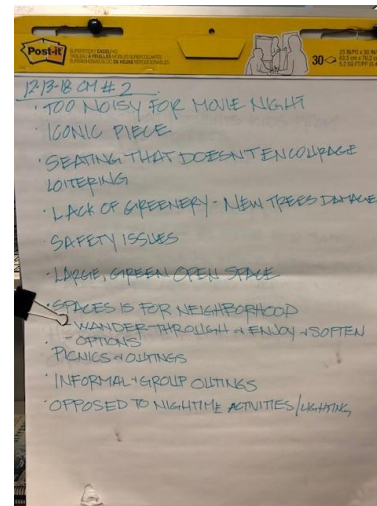 Post-it
30
12-13-18 CM # 2
· TOO NOISY FOR MOVIE NIGHT
· ICONIC PIECE
· SEATING THAT DOESN'T ENCOURAGE
LOITERING
· LACK OF GREENERY - NEW TREES DAMAGE
· SAFETY ISSUES
· LARGE, GREEN OPEN SPACE
· SPACES IS FOR NEIGHBORHOOD
- WANDER-THROUGH & ENJOY & SOFTEN
- OPTIONS
· PICNICS & OUTINGS
· INFORMAL & GROUP OUTINGS
· OPPOSED TO NIGHTIME ACTIVITIES/LIGHTING